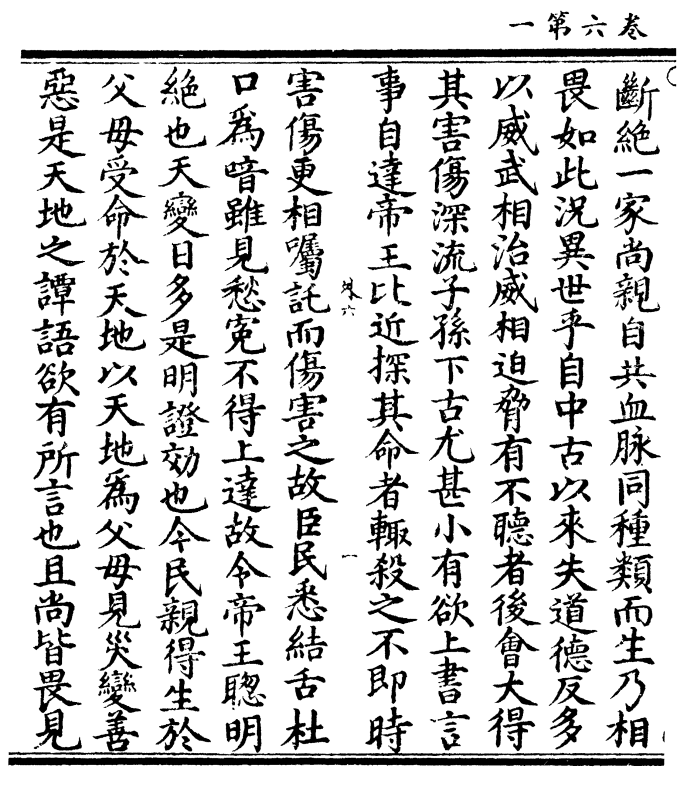 卷六第一
斷絕一家尚親自共血脉同種類而生乃相
畏如此況異世乎自中古以來失道德反多
以威武相治威相迫脅有不聽者後會大得
其害傷深流子孫下古尤甚小有欲上書言
事自達帝王比近探其命者輙殺之不即時
外六
一
害傷更相囑託而傷害之故臣民悉結舌杜
口為喑雖見愁冤不得上達故令帝王聦明
絕也天變日多是明證効也今民親得生於
父母受命於天地以天地為父母見災變善
惡是天地之譚語欲有所言也且尚皆畏見